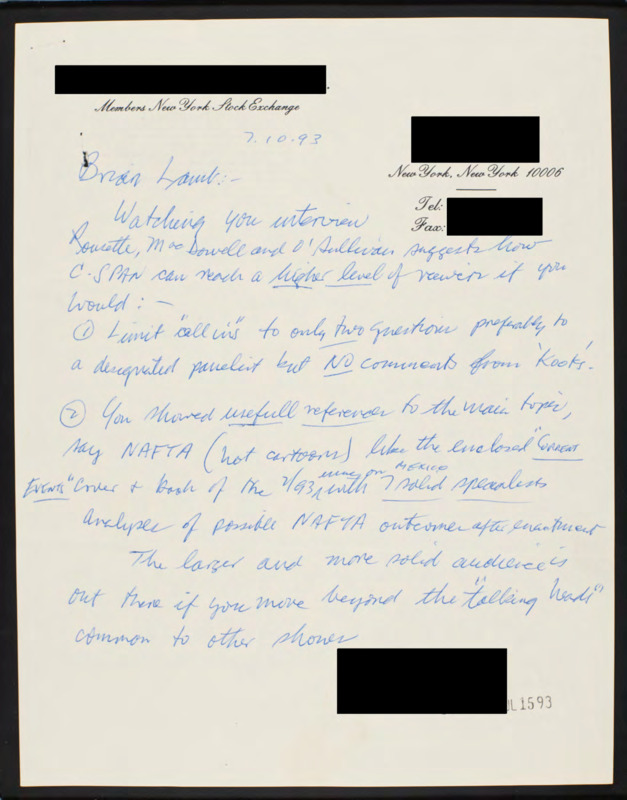 Members New York Stock Exchange
7.10.93
New York, New York 10006
Tel:
Fax:
Brian Lamb:-
Watching you interview
MacDowell and O'Sullivan suggests how
C-SPAN can reach a higher level of viewers if you
would: -
① Limit "call ins" to only two questions preferably to
a designated panelist but NO comments from 'Kooks'.
② You showed usefull references to the main topic,
say NAFTA (not cartoons) like the enclosed "Current
Events" Cover & back of the 2/93 issue on MEXICO with 7 solid specialists
analyses of possible NAFTA outcomes after enactment
The larger and more solid audience is
out there if you move beyond the "talking heads"
common to other shows
1593